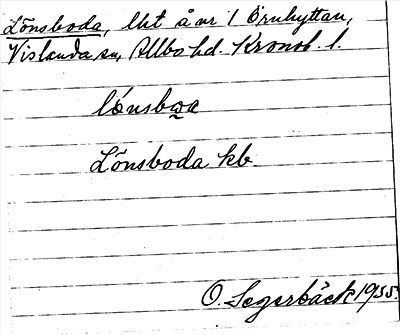 Lönsboda, lht å nr 1 Örnhyttan,
Vislanda sn, Allbo hd. Kronob. l.
Lönsboda kb.
O. Segerbäck 1935.